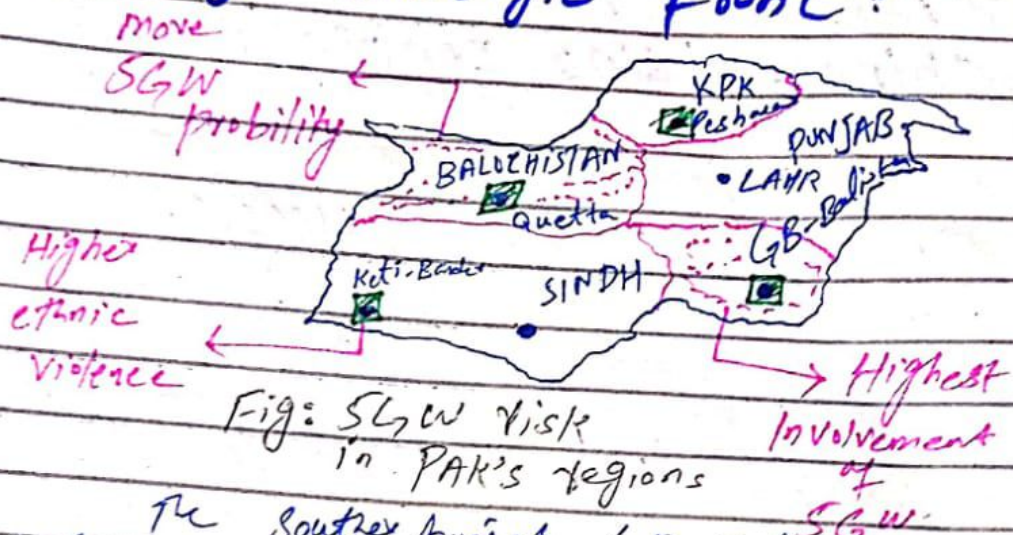 Point.
more
5GW
probility
KPK
Peshawa
PUNJAB
BALOCHISTAN
• LAHR
Quetta
GB-Balti
Higher
ethnic
violence
Keti-Bander
SINDH
Highest
Involvement
of
5GW.
Fig: 5GW risk
in PAK's regions
The Souther